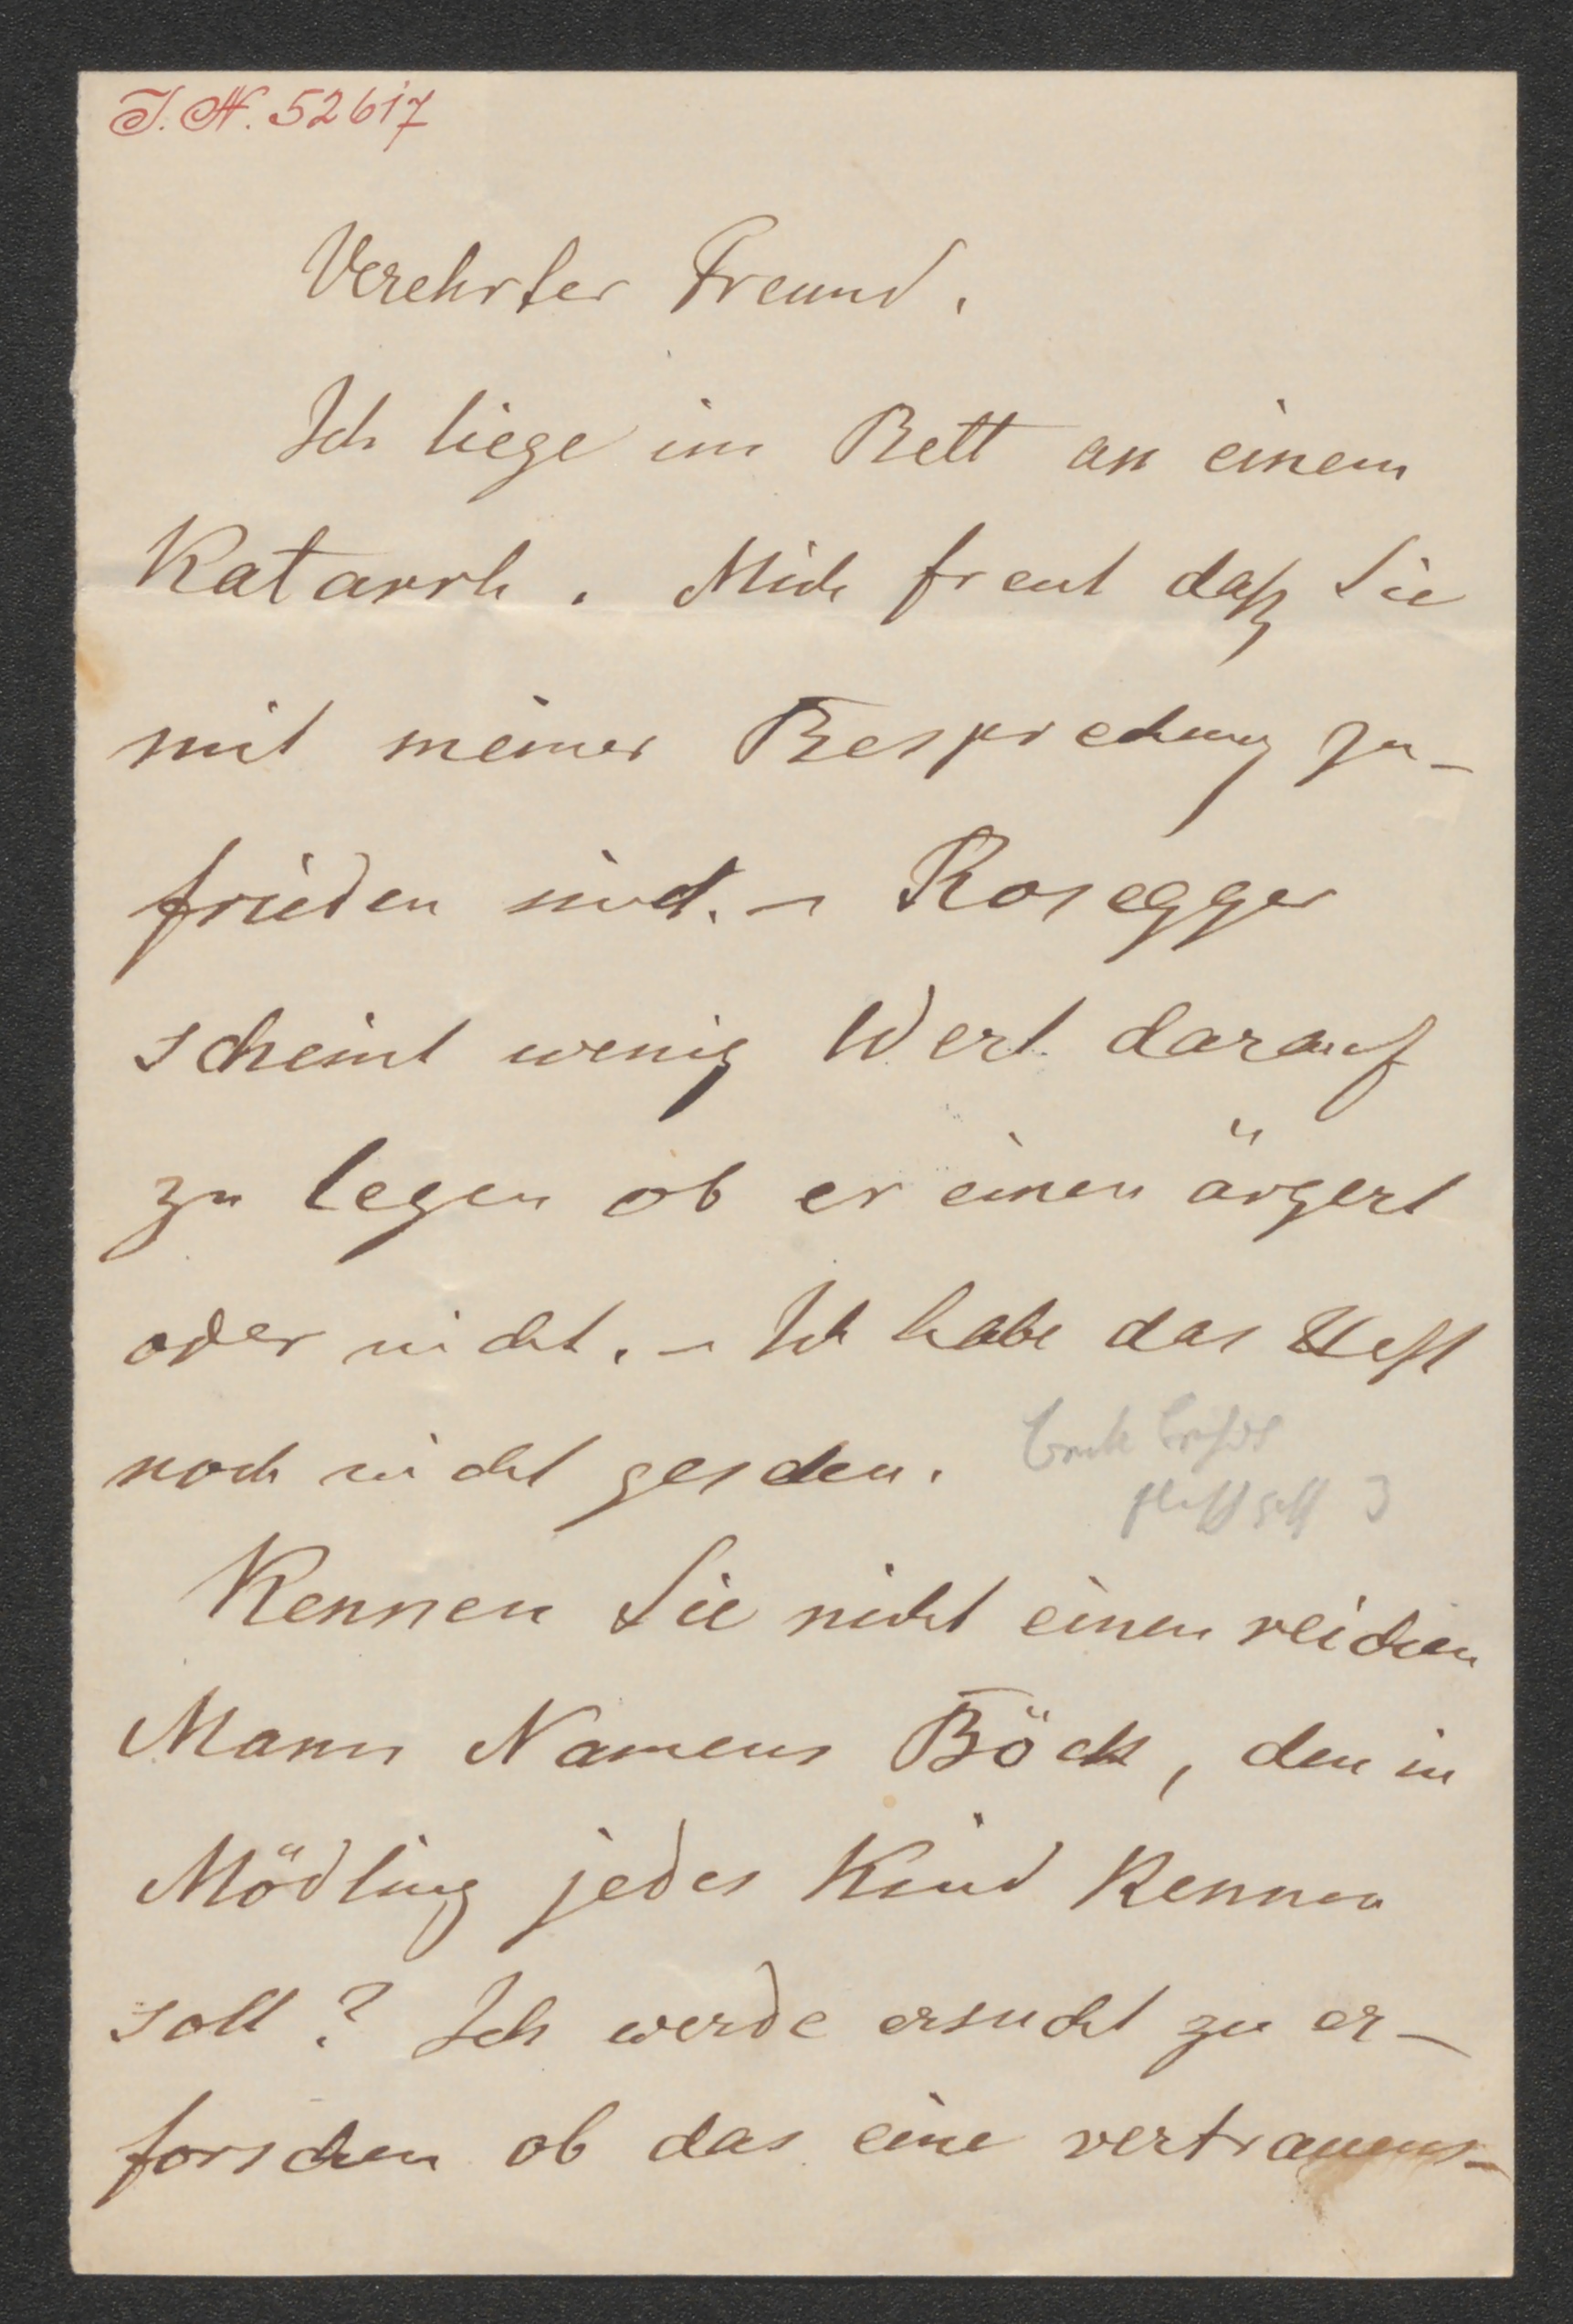 I. N. 52617
Verehrter Freund.
Ich liege im Bett an einem
Katarrh. Mich freut daß Sie
mit meiner Besprechung zu-
frieden sind. – Rosegger
scheint wenig Wert darauf
zu legen ob er einen ärgert
oder nicht. – Ich habe das Heft
noch nicht gesehen.
Kennen Sie nicht einen reichen
Mann Namens Böck, den in
Mödling jedes Kind kennen
soll? Ich werde ersucht zu er-
forschen ob das eine vertrauens-